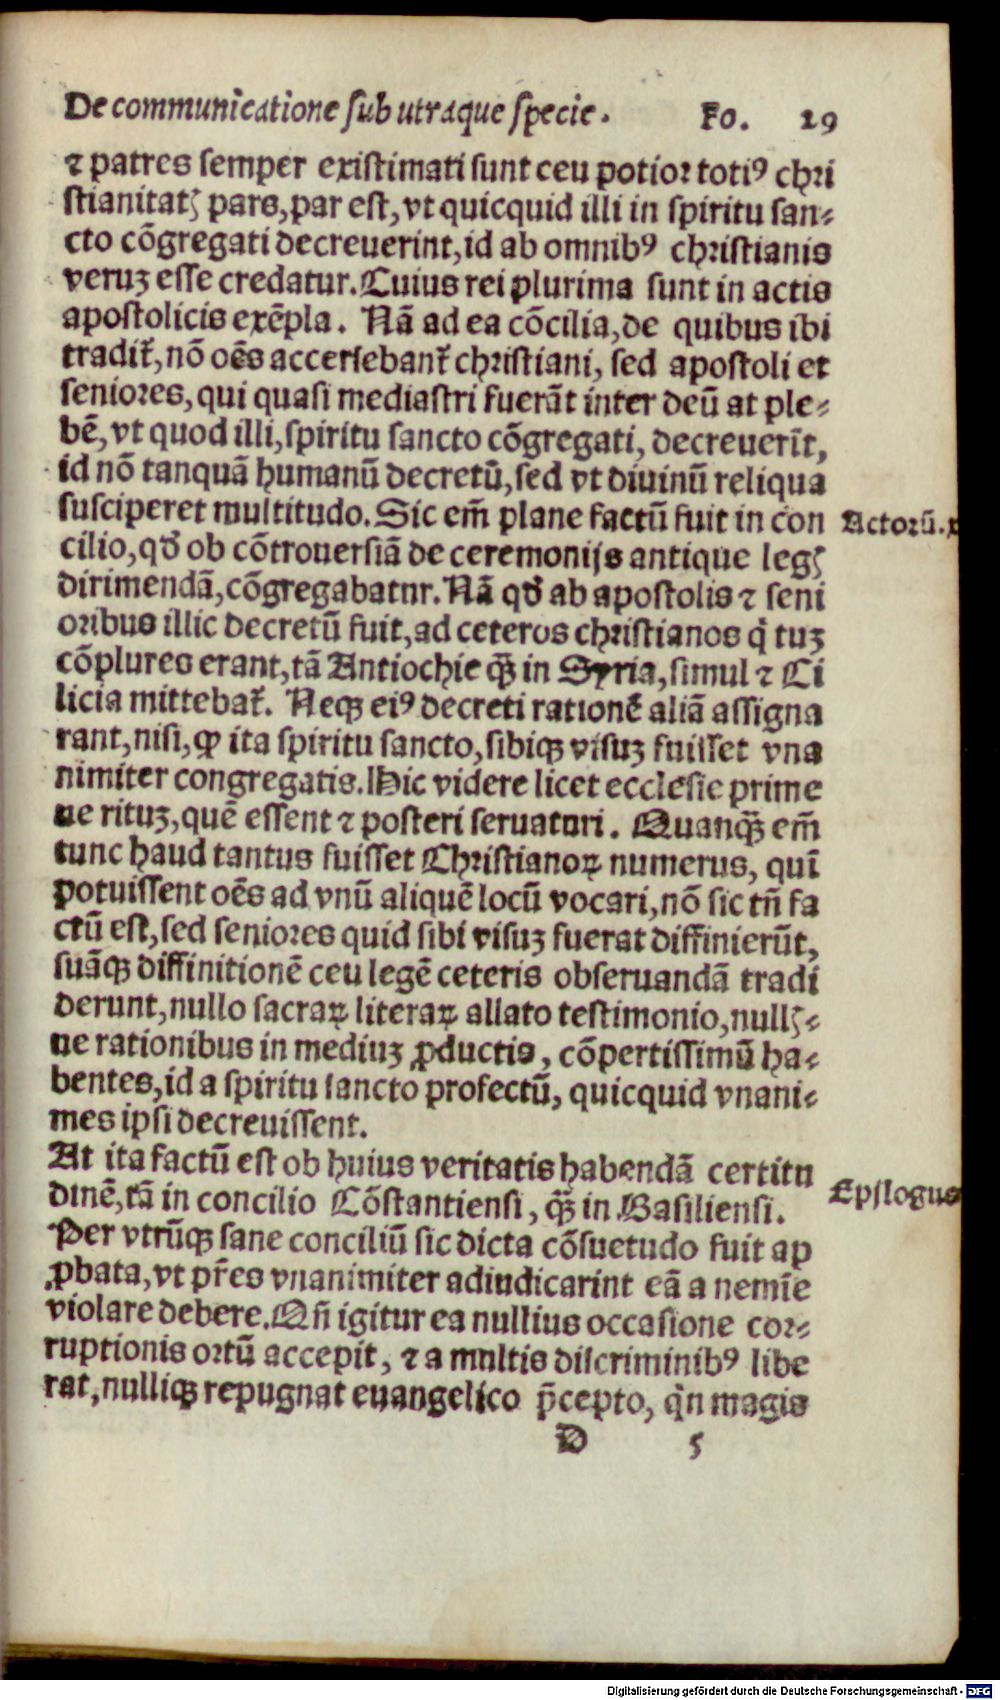 De communicatione sub utraque specie. Fo. 29
⁊ patres semper existimati sunt ceu potior totiꝰ chri
stianitatꝭ pars, par est, vt quicquid illi in spiritu san⸗
cto cõgregati decreuerint, id ab omnibꝰ christianis
veruꝫ esse credatur. Cuius rei plurima sunt in actis
apostolicis exẽpla. Nã ad ea cõcilia, de quibus ibi
tradit̃, nõ oẽs accersebant̃ christiani, sed apostoli et
seniores, qui quasi mediastri fuerãt inter deũ at ple⸗
bẽ, vt quod illi, spiritu sancto cõgregati, decreuerĩt,
id nõ tanquã humanũ decretũ, sed vt diuinũ reliqua
susciperet multitudo. Sic em̃ plane factũ fuit in con
Actorũ.
cilio, qđ ob cõtrouersiã de ceremonijs antique legꝭ
dirimendã, cõgregabatnr. Nã qđ ab apostolis ⁊ seni
oribus illic decretũ fuit, ad ceteros christianos q̇ tuꝫ
cõplures erant, tã Antiochie q̃ꝫ in Syria, simul ⁊ Ci
licia mittebat̃. Neqꝫ eiꝰ decreti rationẽ aliã assigna
rant, nisi, ꝙ ita spiritu sancto, sibiqꝫ visuꝫ fuisset vna
nimiter congregatis. Hic videre licet ecclesie prime
ue rituꝫ, quẽ essent ⁊ posteri seruaturi. Quanq̃ꝫ em̃
tunc haud tantus fuisset Christianoꝝ numerus, quĩ
potuissent oẽs ad vnũ aliquẽ locũ vocari, nõ sic tñ fa
ctũ est, sed seniores quid sibi visuꝫ fuerat diffinierũt,
suãqꝫ diffinitionẽ ceu legẽ ceteris obseruandã tradi
derunt, nullo sacraꝝ literaꝝ allato testimonio, nullꝭ⸗
ue rationibus in mediuꝫ ꝓductis, cõpertissimũ ha⸗
bentes, id a spiritu sancto profectũ, quicquid vnani⸗
mes ipsi decreuissent.
At ita factũ est ob huius veritatis habendã certitu
Epilogus
dinẽ, tã in concilio Cõstantiensi, q̃ꝫ in Basiliensi.
Per vtrũqꝫ sane conciliũ sic dicta cõsuetudo fuit ap
ꝓbata, vt pr̃es vnanimiter adiudicarint eã a nemĩe
violare debere. Qñ igitur ea nullius occasione cor⸗
ruptionis ortũ accepit, ⁊ a multis discriminibꝰ libe
rat, nulliqꝫ repugnat euangelico p̃cepto, q̇n magis
D 5
Digitalisierung gefördert durch die Deutsche Forschungsgemeinschaft - DFG